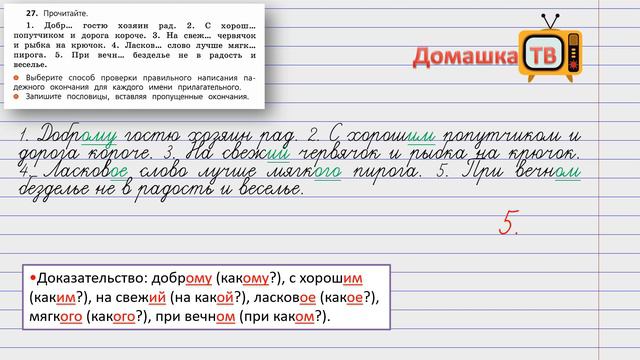 27. Прочитайте.
1. Добр... гостю хозяин рад. 2. С хорош...
попутчиком и дорога короче. 3. На свеж... червячок
и рыбка на крючок. 4. Ласков... слово лучше мягк...
пирога. 5. При вечн... безделье не в радость и
веселье.
Выберите способ проверки правильного написания па-
дежного окончания для каждого имени прилагательного.
Запишите пословицы, вставляя пропущенные окончания.
Домашка ТВ
1. Доброму гостю хозяин рад. 2. С хорошим попутчиком и
дорога короче. 3. На свежий червячок и рыбка на крючок.
4. Ласковое слово лучше мягкого пирога. 5. При вечном
безделье не в радость и веселье.
5.
•Доказательство: доброму (какому?), с хорошим
(каким?), на свежий (на какой?), ласковое (какое?),
мягкого (какого?), при вечном (при каком?).